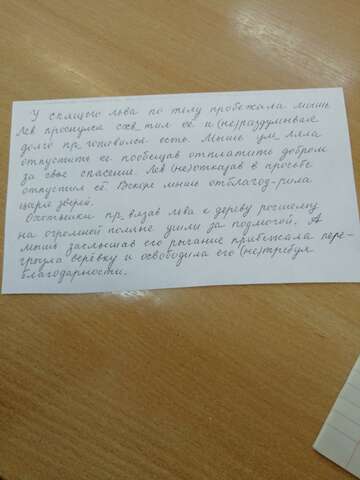 У спящего льва по телу пробежала мышь
Лев проснулся схв_тил её и (не)раздумывая
долго пр_готовился есть. Мышь ум_ляла
отпустить ее пообещав отплатить добром
за свое спасение. Лев (не)отказав в просьбе
отпустил её. Вскоре мышь отблагод_рила
царя зверей.
Охотники пр_вязав льва к дереву росшему
на огромной поляне ушли за подмогой. А
мышь заслышав его рычание прибежала пере-
грызла верёвку и освободила его (не)требуя
благодарности.